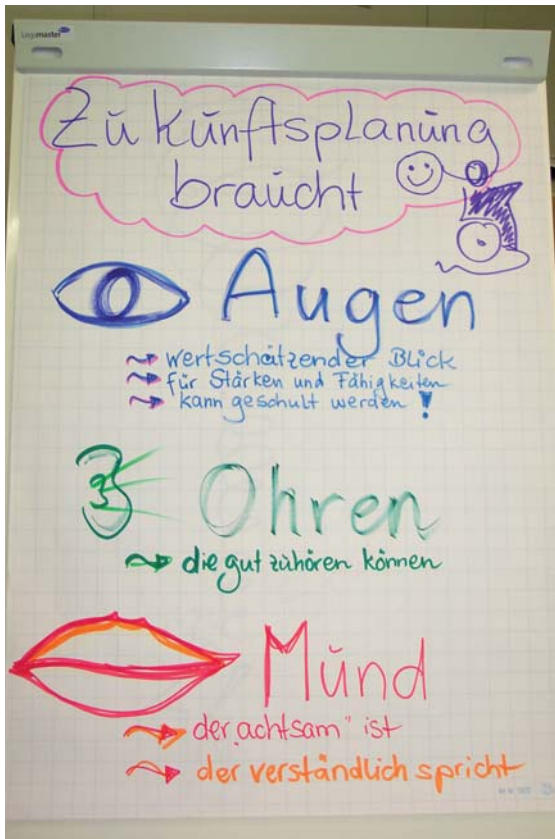 Legamaster
Zukunftsplanung
braucht
Augen
wertschätzender Blick
für Stärken und Fähigkeiten
kann geschult werden!
Ohren
die gut zuhören können
Mund
der „achtsam" ist
der verständlich spricht